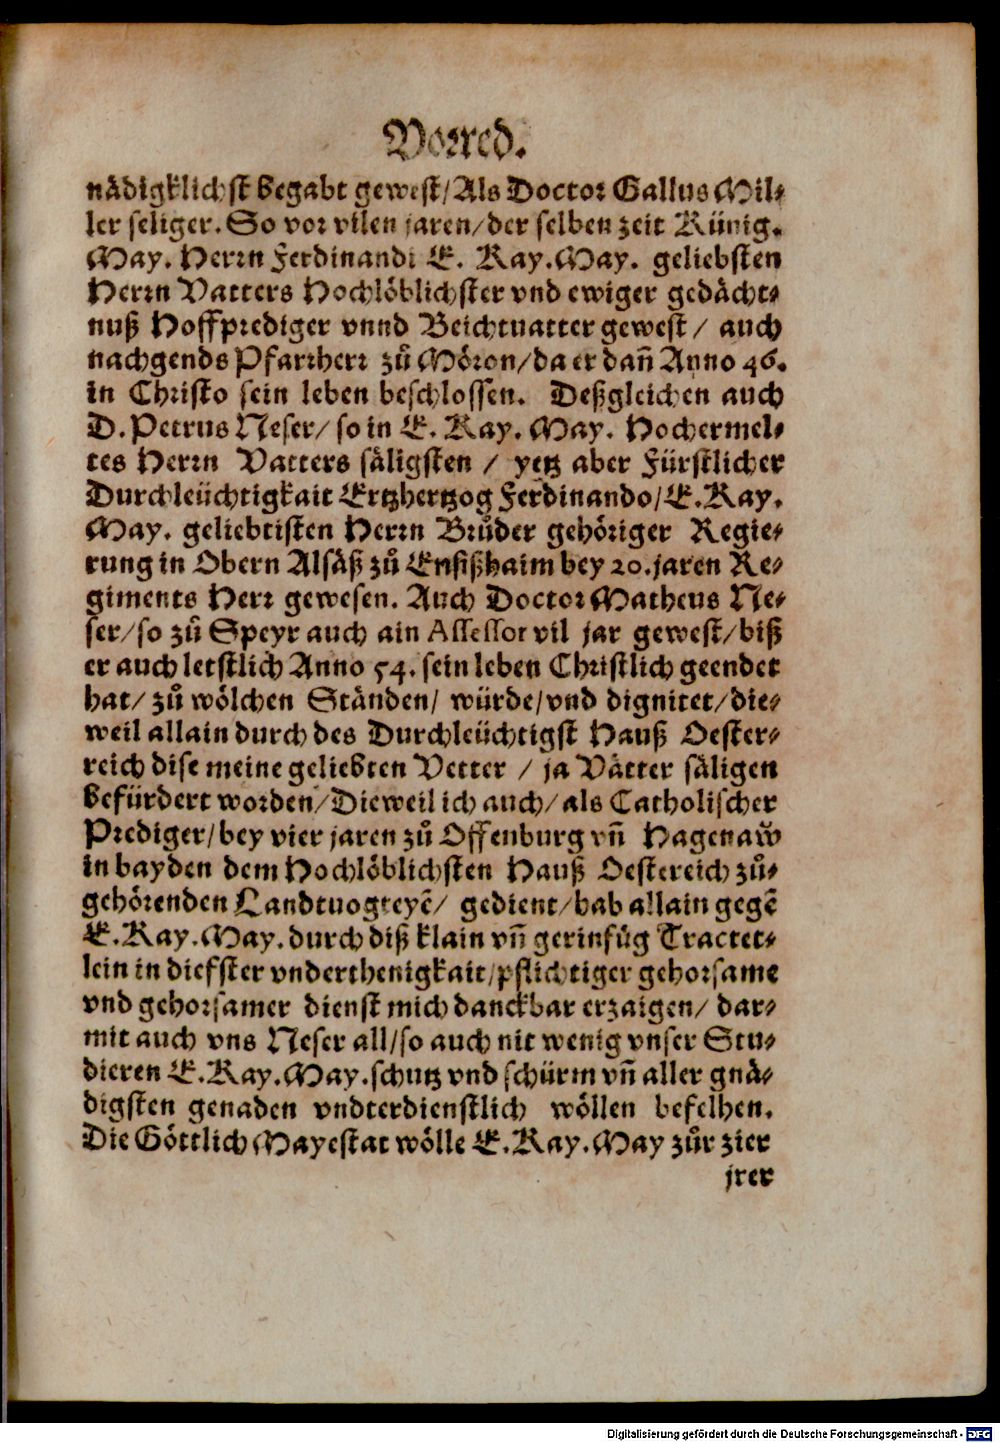 Vorred.
nädigklichst begabt gewest/Als Doctor Gallus Mil⸗
ler seliger. So vor vilen jaren/der selben zeit Künig.
May. Herrn Ferdinandi E. Kay. May. geliebsten
Herrn Vatters Hochlöblichster vnd ewiger gedächt⸗
nuß Hoffprediger vnnd Beichtuatter gewest/ auch
nachgends Pfarrherr zů Möron/da er dañ Anno 46.
in Christo sein leben beschlossen. Deßgleichen auch
D. Petrus Neser/ so in E. Kay. May. Hochermel⸗
tes Herrn Vatters säligsten / yetz aber Fürstlicher
Durchleüchtigkait Ertzhertzog Ferdinando/E. Kay.
May. geliebtisten Herrn Brůder gehöriger Regie⸗
rung in Obern Alsäß zů Ensißhaim bey 20. jaren Re⸗
giments Herr gewesen. Auch Doctor Matheus Ne⸗
ser/so zů Speyr auch ain Assessor vil jar gewest/biß
er auch letstlich Anno 54. sein leben Christlich geendet
hat/ zů wölchen Ständen/ würde/vnd dignitet/die⸗
weil allain durch des Durchleüchtigst Hauß Oester⸗
reich dise meine geliebten Vetter / ja Vätter säligen
befürdert worden/Dieweil ich auch/als Catholischer
Prediger/bey vier jaren zů Offenburg vñ Hagenaw̃
in bayden dem Hochlöblichsten Hauß Oestereich zů⸗
gehörenden Landtuogteyẽ/ gedient/hab allain gegẽ
E. Kay. May. durch diß klain vñ gerinfüg Tractet⸗
lein in diefster vnderthenigkait/pflichtiger gehorsame
vnd gehorsamer dienst mich danckbar erzaigen/ dar⸗
mit auch vns Neser all/so auch nit wenig vnser Stu⸗
dieren E. Kay. May. schutz vnd schürm vñ aller gnä⸗
digsten genaden vndterdienstlich wöllen befelhen.
Die Göttlich Mayestat wölle E. Kay. May zůr zier
jrer
Digitalisierung gefördert durch die Deutsche Forschungsgemeinschaft - DFG